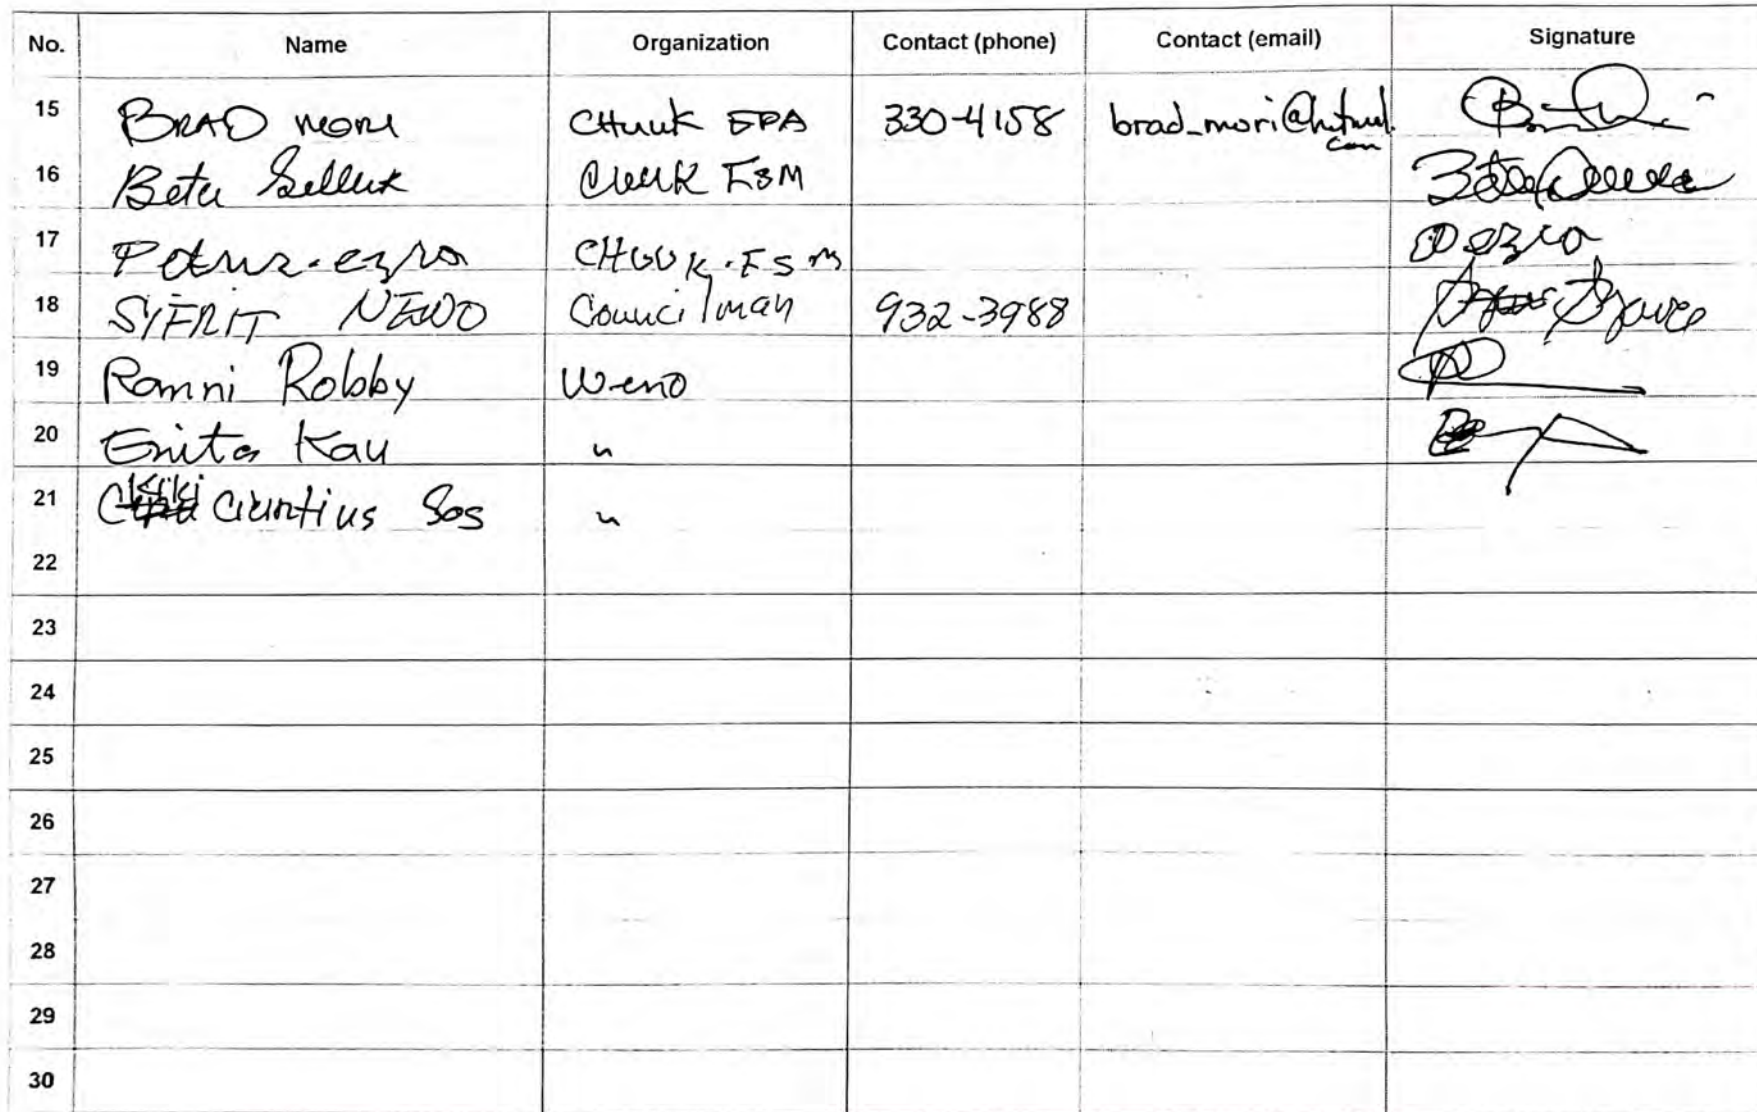 No. Name Organization Contact (phone) Contact (email) Signature
15 BRAD MORI CHUUK EPA 330-4158 brad_mori@hotmail.com
16 Beta Chuuk FSM
17 ezra CHUUK.FSM
18 SIFRIT Councilman 932-3988
19 Ranni Robby Weno
20 Enita Kau "
21 Kiki Sos "
22
23
24
25
26
27
28
29
30